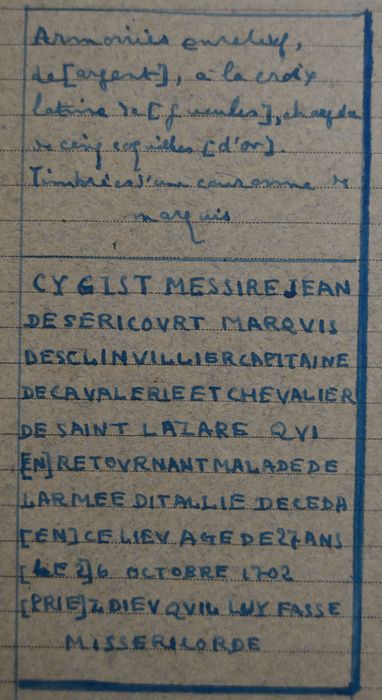 Armoiries en relief,
de [argent], à la croix
latine de [gueules], chargée
de cinq coquilles [d'or].
Timbrées d'une couronne de
marquis
CY GIST MESSIRE JEAN
DE SERICOVRT MARQVIS
DESCLINVILLIER CAPITAINE
DE CAVALERIE ET CHEVALIER
DE SAINT LAZARE QVI
[EN] RETOVRNANT MALADE DE
LARMEE DITALLIE DECEDA
[EN] CE LIEV AGE DE 27 ANS
[LE 2]6 OCTOBRE 1702
[PRIE]Z DIEV QVIL LUY FASSE
MISSERICORDE